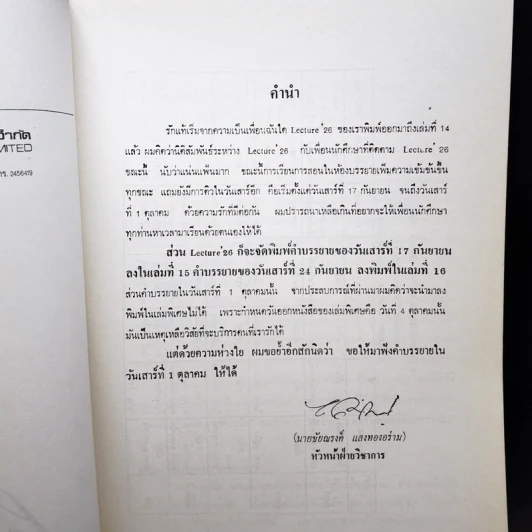 จำกัด
LIMITED
โทร. 2456419
คำนำ
รักแท้เริ่มจากความเป็นเพื่อนฉันใด Lecture'26 ของเราพิมพ์ออกมาถึงเล่มที่ 14
แล้ว ผมคิดว่ามิติสัมพันธ์ระหว่าง Lecture'26 กับเพื่อนนักศึกษาที่ติดตาม Lecture'26
ขณะนี้ นับว่าแน่นแฟ้นมาก ขณะนี้การเรียนการสอนในห้องบรรยายเพิ่มความเข้มข้นขึ้น
ทุกขณะ แถมยังมีการติวในวันเสาร์อีก คือเริ่มตั้งแต่วันเสาร์ที่ 17 กันยายน จนถึงวันเสาร์
ที่ 1 ตุลาคม ด้วยความรักที่มีต่อกัน ผมปรารถนาเหลือเกินที่อยากจะให้เพื่อนนักศึกษา
ทุกท่านหาเวลามาเรียนด้วยตนเองให้ได้
ส่วน Lecture'26 ก็จะจัดพิมพ์คำบรรยายของวันเสาร์ที่ 17 กันยายน
ลงในเล่มที่ 15 คำบรรยายของวันเสาร์ที่ 24 กันยายน ลงพิมพ์ในเล่มที่ 16
ส่วนคำบรรยายในวันเสาร์ที่ 1 ตุลาคมนั้น จากประสบการณ์ที่ผ่านมาผมคิดว่าจะนำมาลง
พิมพ์ในเล่มพิเศษไม่ได้ เพราะกำหนดวันออกหนังสือของเล่มพิเศษคือ วันที่ 4 ตุลาคมนั้น
มันเป็นเหตุเหลือวิสัยที่จะบริการคนที่เรารักได้
แต่ด้วยความห่วงใย ผมขอย้ำอีกสักนิดว่า ขอให้มาฟังคำบรรยายใน
วันเสาร์ที่ 1 ตุลาคม ให้ได้
(นายชัยณรงค์ แสงทองอร่าม)
หัวหน้าฝ่ายวิชาการ